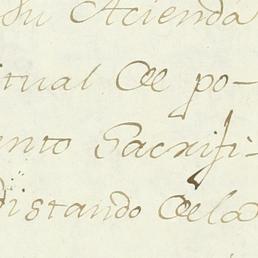 su Acienda
itual de po-
ento Sacrifi-
distando dela